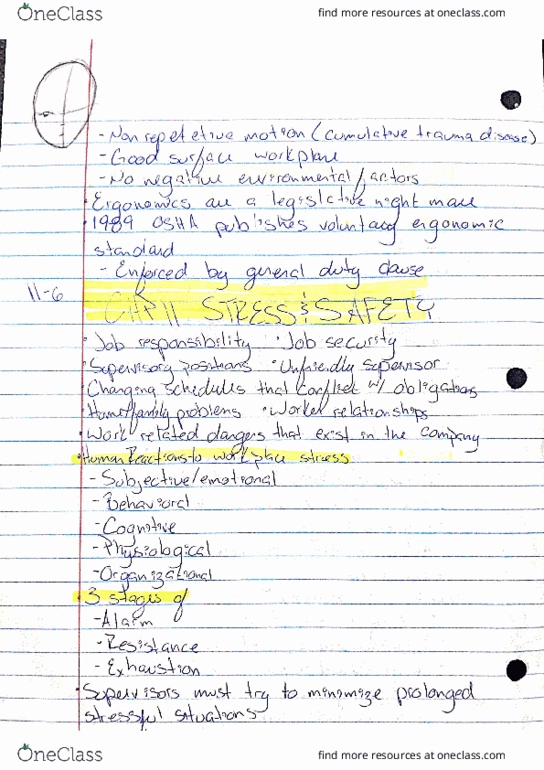 OneClass
find more resources at oneclass.com
- Non repetetive motion (cumulative trauma disease)
- Good surface workplane
- No negative environmental factors
· Ergonomics are a legislative night mare
· 1989 OSHA publishes voluntary ergonomic
standard
- Enforced by general duty clause
11-6
CHP 11 STRESS & SAFETY
· Job responsibility · Job security
· Supervisory positions · Unfriendly supervisor
· Changing schedules that conflict w/ obligations
· Home/family problems · Worker relationships
· Work related dangers that exist in the company
· Human Reactions to workplace stress
- Subjective/emotional
- Behavioral
- Cognitive
- Physiological
- Organizational
· 3 stages of
- Alarm
- Resistance
- Exhaustion
· Supervisors must try to minimize prolonged
stressful situations
OneClass
find more resources at oneclass.com